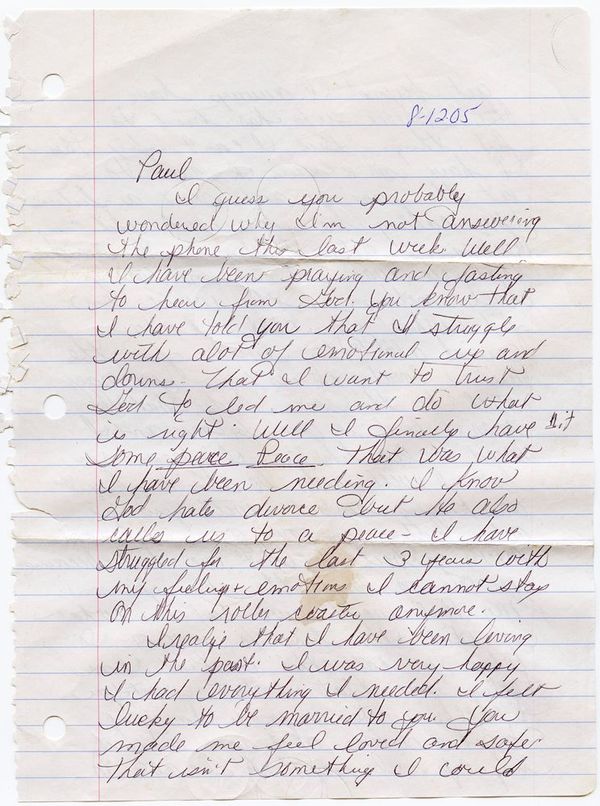 8-1205
Paul
I guess you probably
wondered why I'm not answering
the phone this last week. Well
I have been praying and fasting
to hear from God. You know that
I have told you that I struggle
with alot of emotional up and
downs - That I want to trust
God to led me and do what
is right. Well I finally have
some peace Peace. That was what
I have been needing. I know
God hates divorce but He also
calls us to a peace - I have
struggled for the last 3 years with
my feeling + emotions I cannot stay
on this roller coaster anymore.
I realize that I have been living
in the past. I was very happy
I had everything I needed. I felt
lucky to be married to you. You
made me feel loved and safe
That isn't something I could